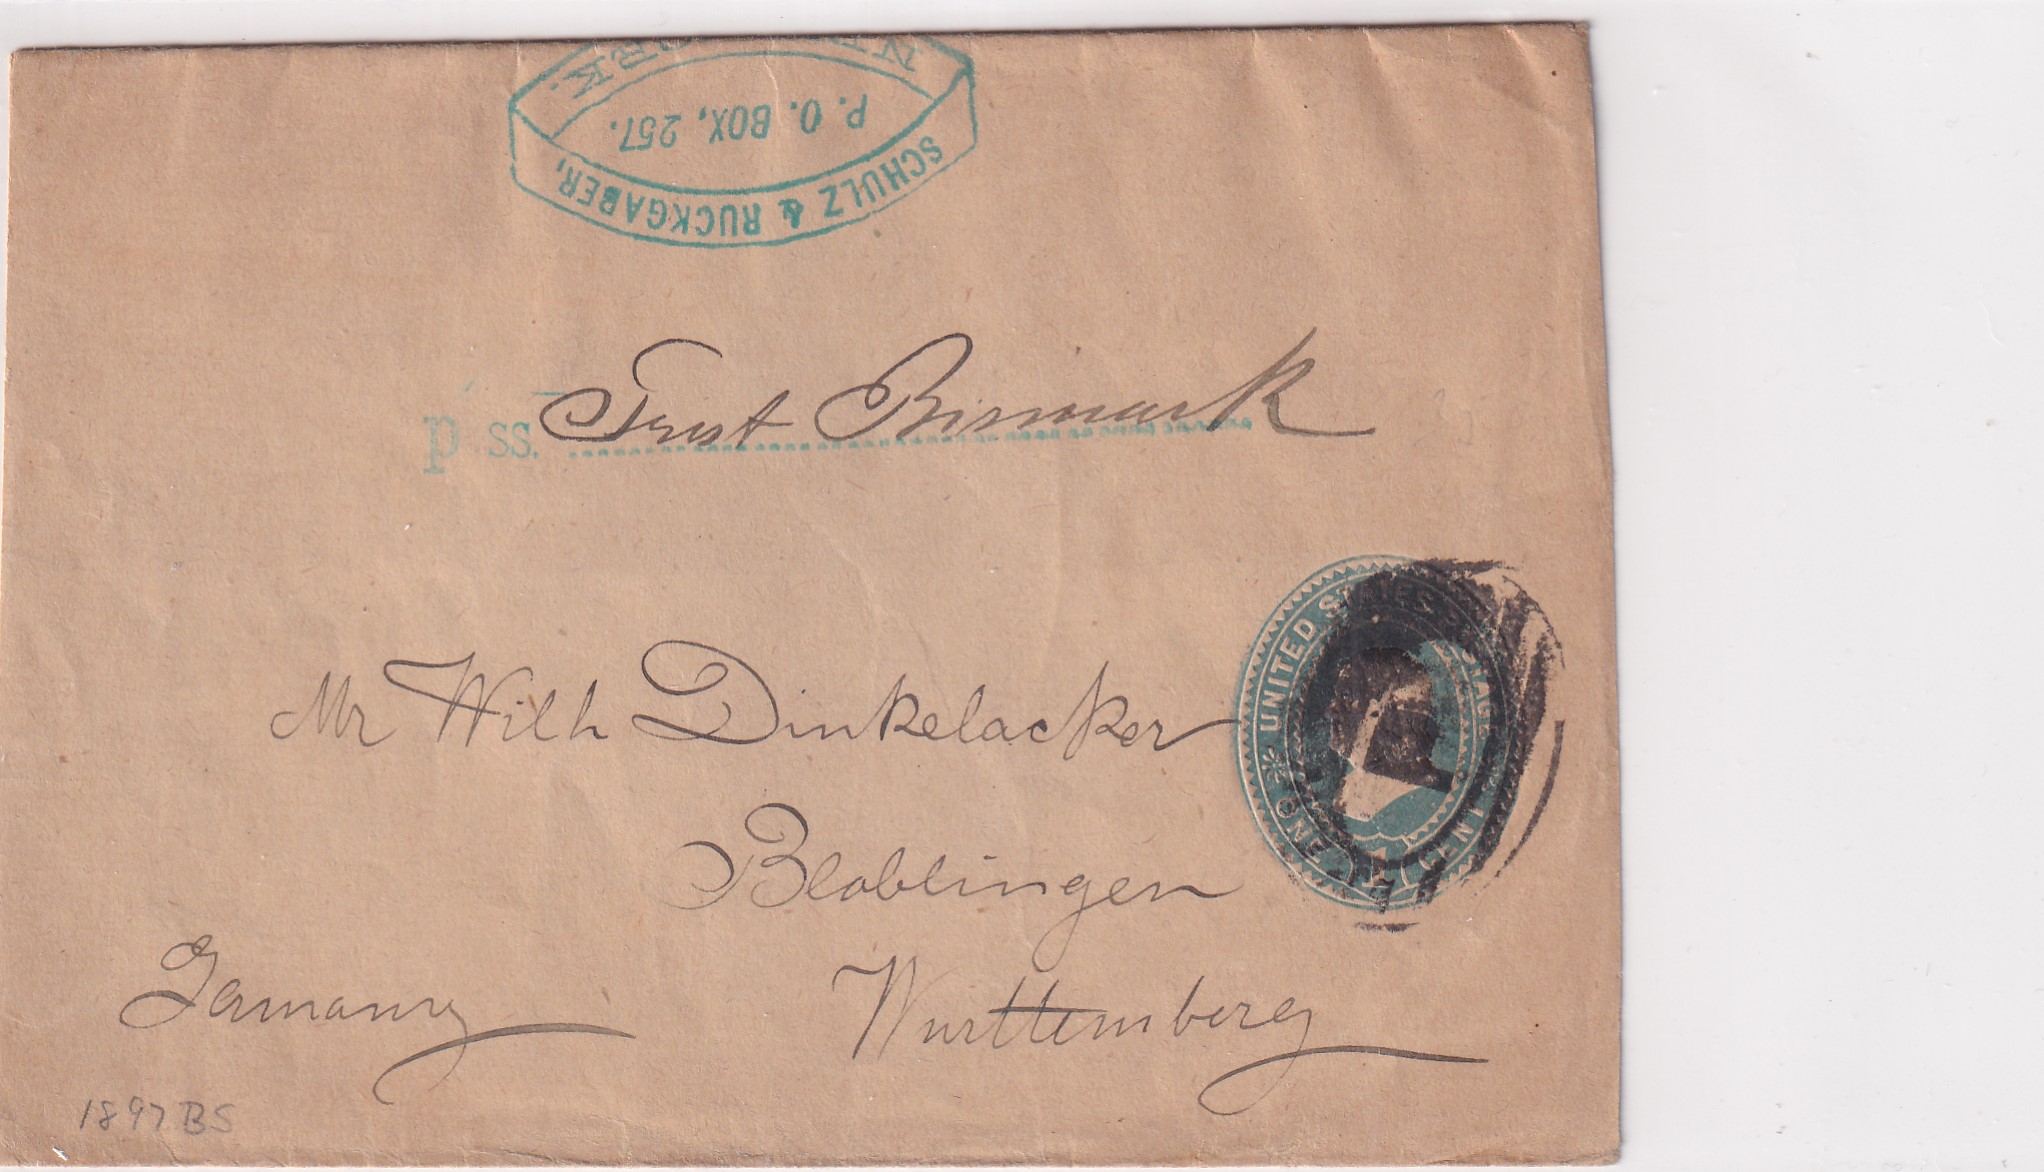 SCHULZ & RUCKGABER,
P. O. BOX, 257.
p ss. Furst Bismark
UNITED STATES
ONE
1
Mr Wilh Dinkelacker
Bloblingen
Wurttemberg
Germany
1897 BS